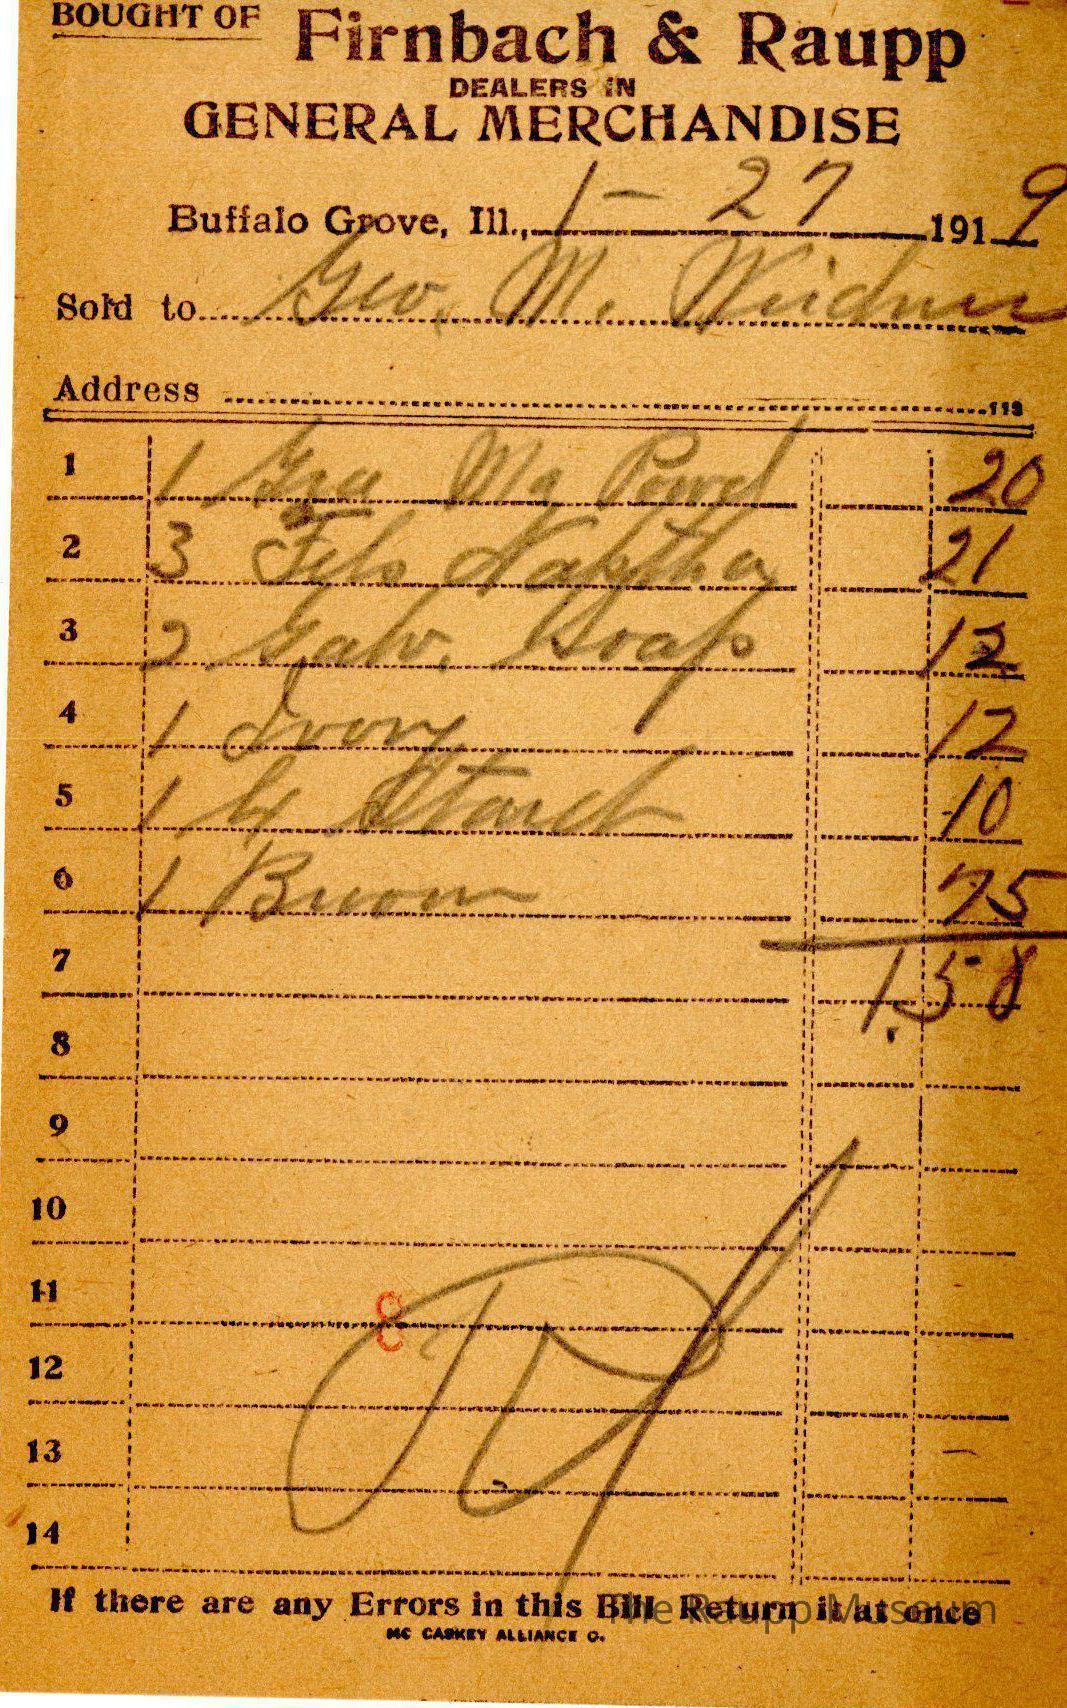 BOUGHT OF
Firnbach & Raupp
DEALERS IN
GENERAL MERCHANDISE
Buffalo Grove, Ill., 1-27 1919
Sold to Geo. M. Weidner
Address 113
1 1 Gra Ma Powd 20
2 3 Fels Naptha 21
3 2 Galv. Soap 12
4 1 Ivory 12
5 1 Starch 10
6 1 Broom 75
7 1.58
8
9
10
11
12
13
14
If there are any Errors in this Bill Return it at once
MC CASKEY ALLIANCE O.
The Raupp Museum